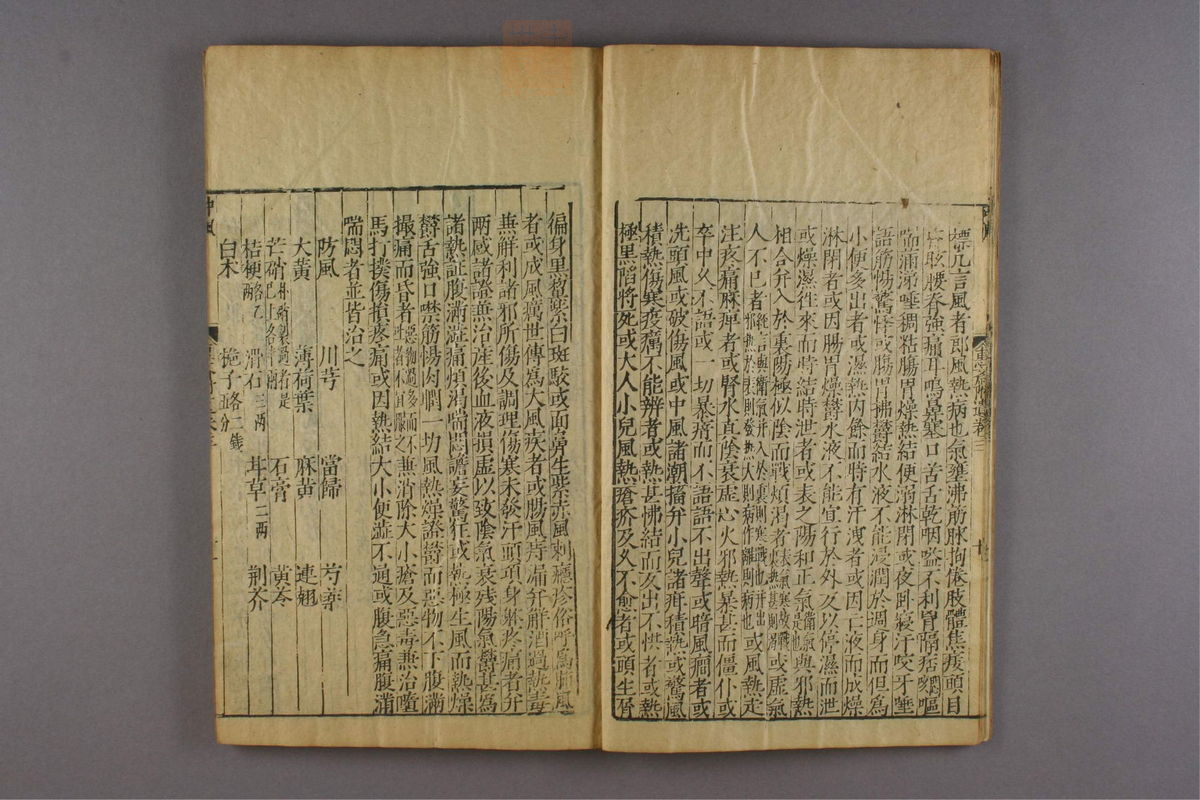 標凡言風者卽風熱病也氣壅沸筋脉拘倦肢體焦痿頭目
眩腰脊強痛耳鳴鼻塞口苦舌乾咽嗌不利胷膈痞悶嘔
喘滿涕唾稠粘腸胃燥熱結便溺淋閉或夜卧寢汗咬牙睡
語筋惕驚悸或腸胃拂鬱結水液不能浸潤於週身而但爲
小便多出者或濕熱內餘而時有汗洩者或因亡液而成燥
淋閉者或因腸胃燥鬱水液不能宣行於外及以停濕而泄
或燥濕徃來而時結時泄者或表之陽和正氣衞氣是也與邪熱
相合并入於裏陽極似陰而戰煩渴者表氣寒故戰裏熱甚則渴或虛氣
人不已者經言與衞氣并入於裏則寒戰也并出邪熱於表則發熱大則病作離則病也或風熱走
注疼痛麻痺者或腎水真陰衰虛心火邪熱暴甚而僵仆或
卒中久不語或一切暴瘖而不語語不出聲或暗風癎者或
洗頭風或破傷風或中風諸潮搐并小兒諸疳積熱或驚風
積熱傷寒疫癘不能辨者或熱甚怫結而反出不快者或熱
極黑陷將死或大人小兒風熱瘡疥及久不愈者或頭生屑
徧身黑黧紫白斑駁或面鼻生紫赤風刺癮疹俗呼爲肺風
者或成風癘世傳爲大風疾者或腸風痔漏并解酒過熱毒
無解利諸邪所傷及調理傷寒未發汗頭項身體疼痛者并
兩感諸證兼治產後血液損虛以致陰氣衰殘陽氣鬱甚爲
諸熱証腹滿澁痛煩渴喘悶譫妄驚狂或熱極生風而熱燥
鬱舌強口噤筋惕肉瞤一切風熱燥證鬱而惡物不下腹滿
撮痛而昏者惡物過多而不吐者不宜服之兼消除大小瘡及惡毒兼治墮
馬打撲傷損疼痛或因熱結大小便澁不通或腹急痛腹滿
喘悶者並皆治之
防風 川芎 當歸 芍藥
大黃 薄荷葉 麻黃 連翹
芒硝 石膏 黃芩
桔梗各一兩 滑石三兩 甘草二兩 荆芥
白术 梔子各二錢五分